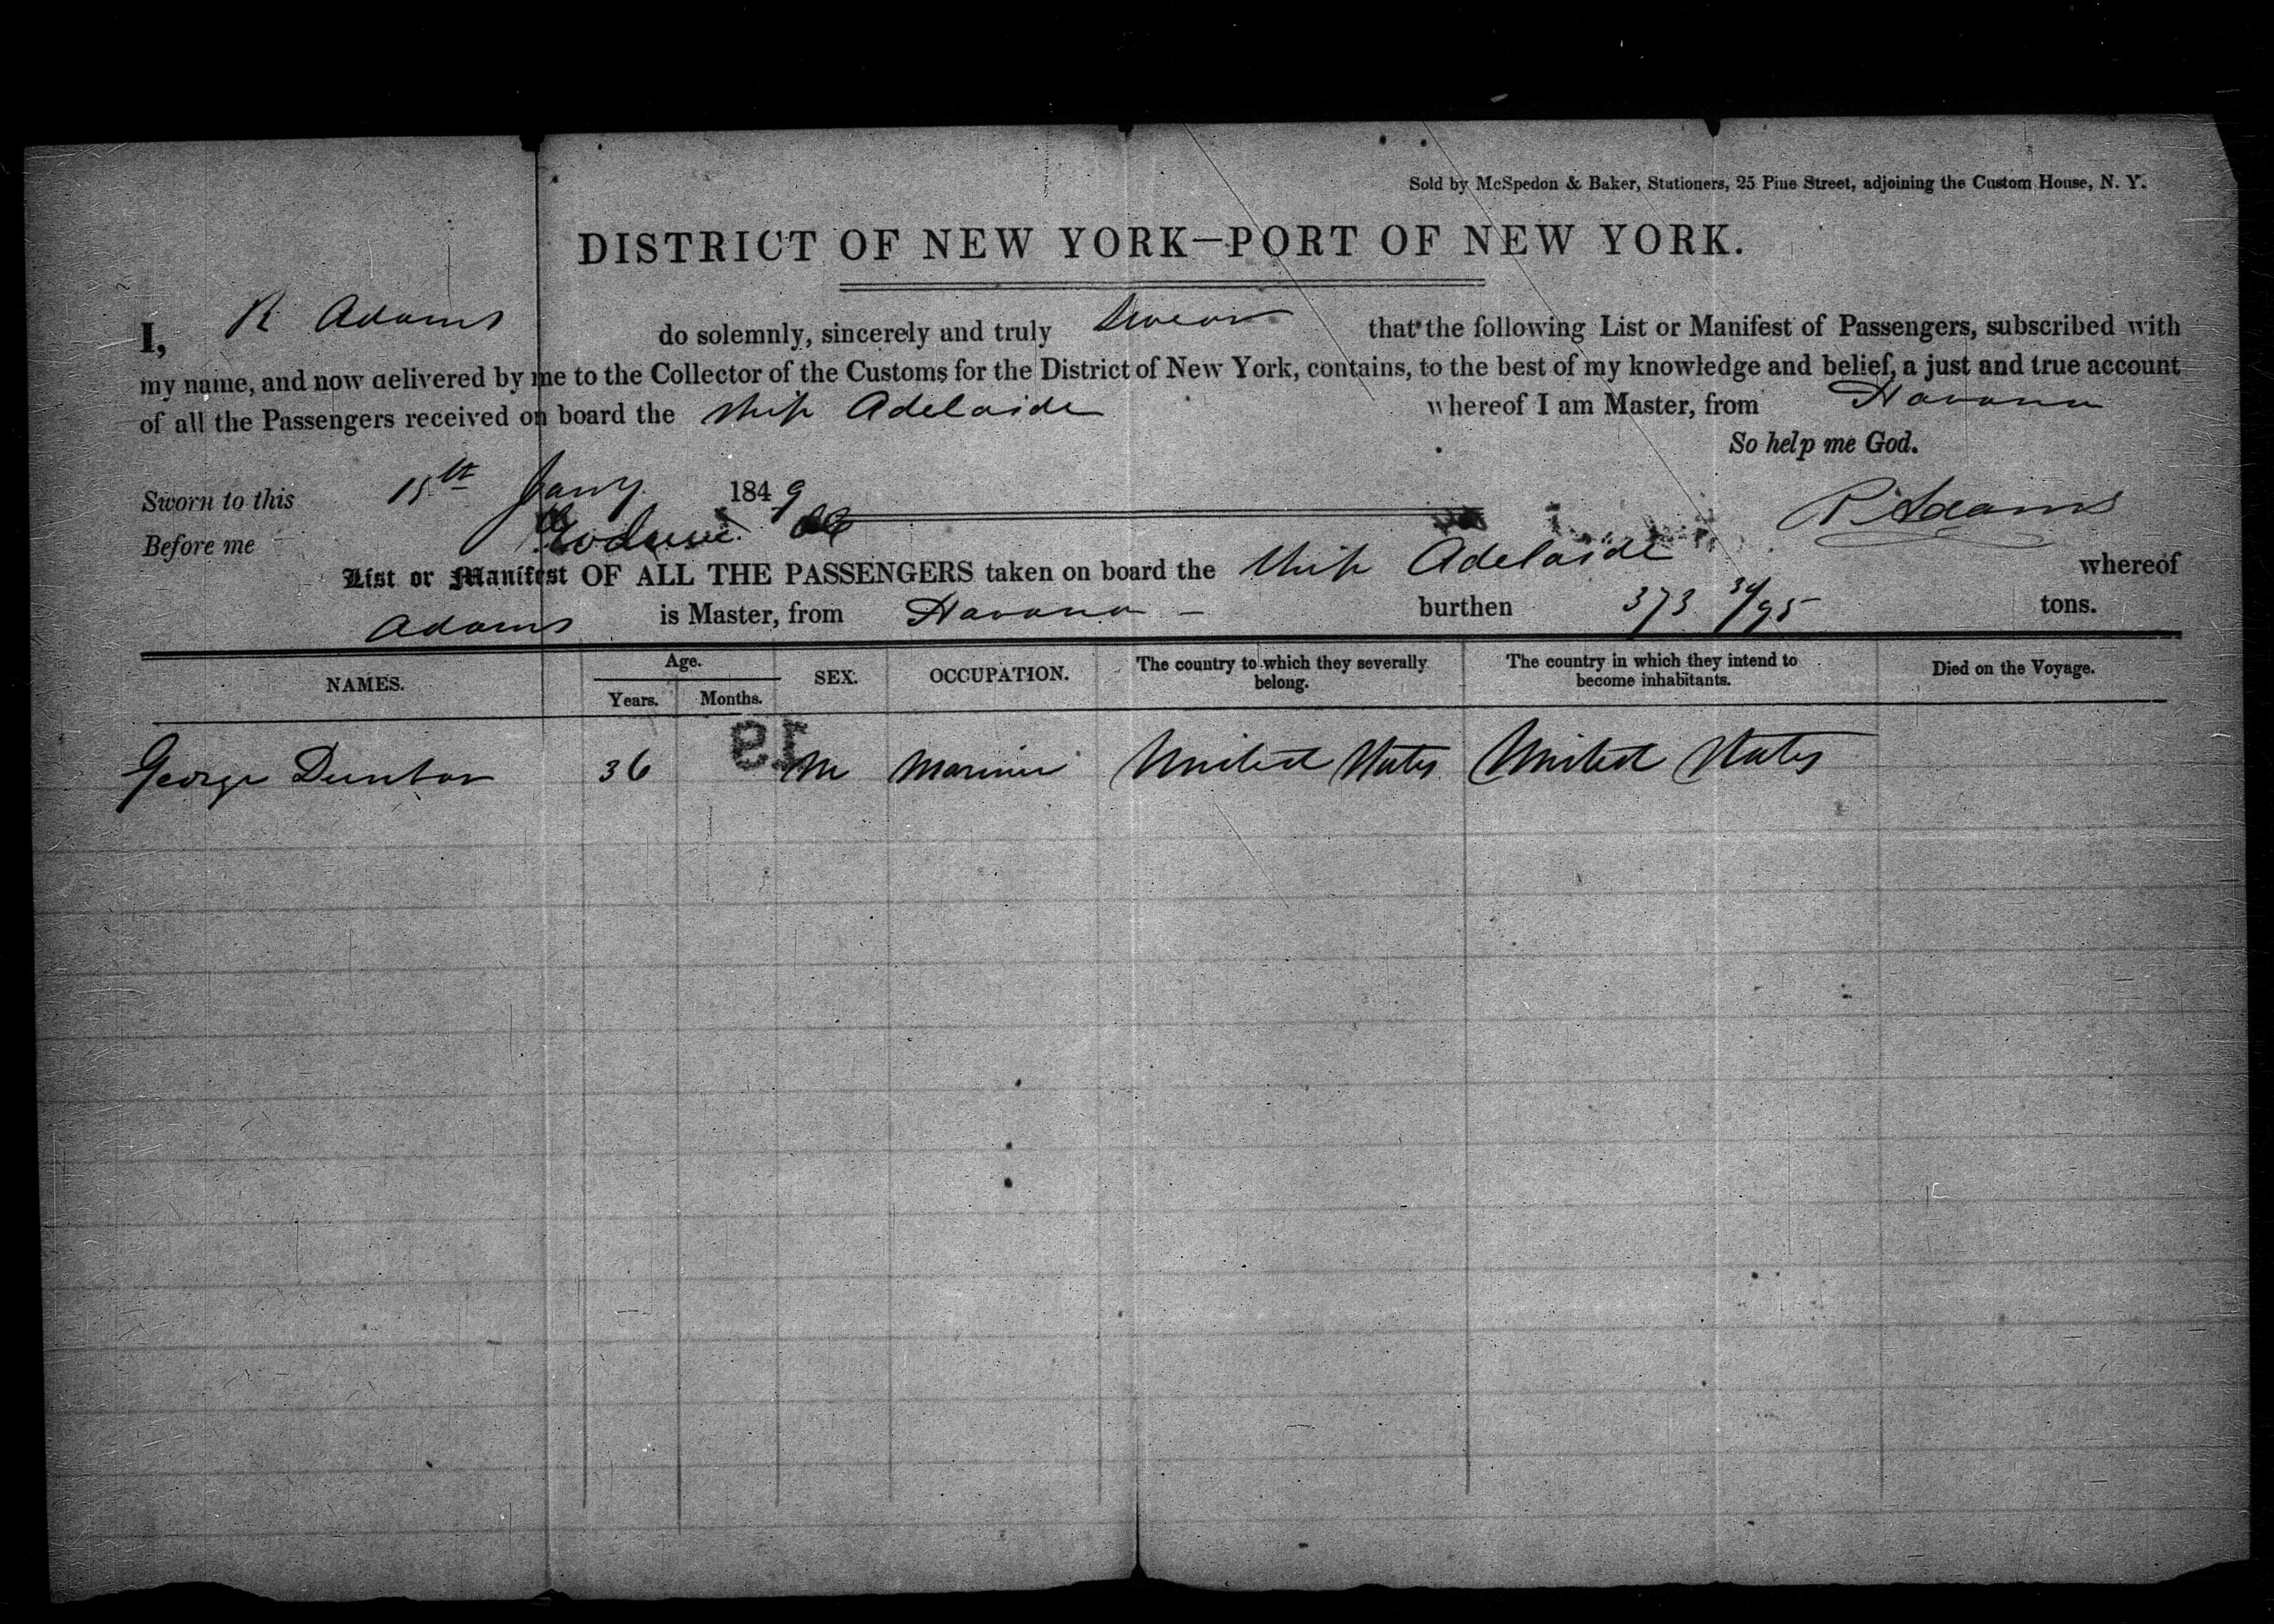 Sold by McSpedon & Baker, Stationers, 25 Pine Street, adjoining the Custom House, N. Y.
DISTRICT OF NEW YORK—PORT OF NEW YORK.
I, R Adams do solemnly, sincerely and truly swear that the following List or Manifest of Passengers, subscribed with
my name, and now delivered by me to the Collector of the Customs for the District of New York, contains, to the best of my knowledge and belief, a just and true account
of all the Passengers received on board the ship Adelaide whereof I am Master, from Havana
So help me God.
Sworn to this 15th Jany 1849
R Adams
Before me
List or Manifest OF ALL THE PASSENGERS taken on board the Ship Adelaide whereof
Adams is Master, from Havana — burthen 373 /95 tons.
NAMES. Age. Years. Months. SEX. OCCUPATION. The country to which they severally belong. The country in which they intend to become inhabitants. Died on the Voyage.
19
George Dunbar 36 M Mariner United States United States